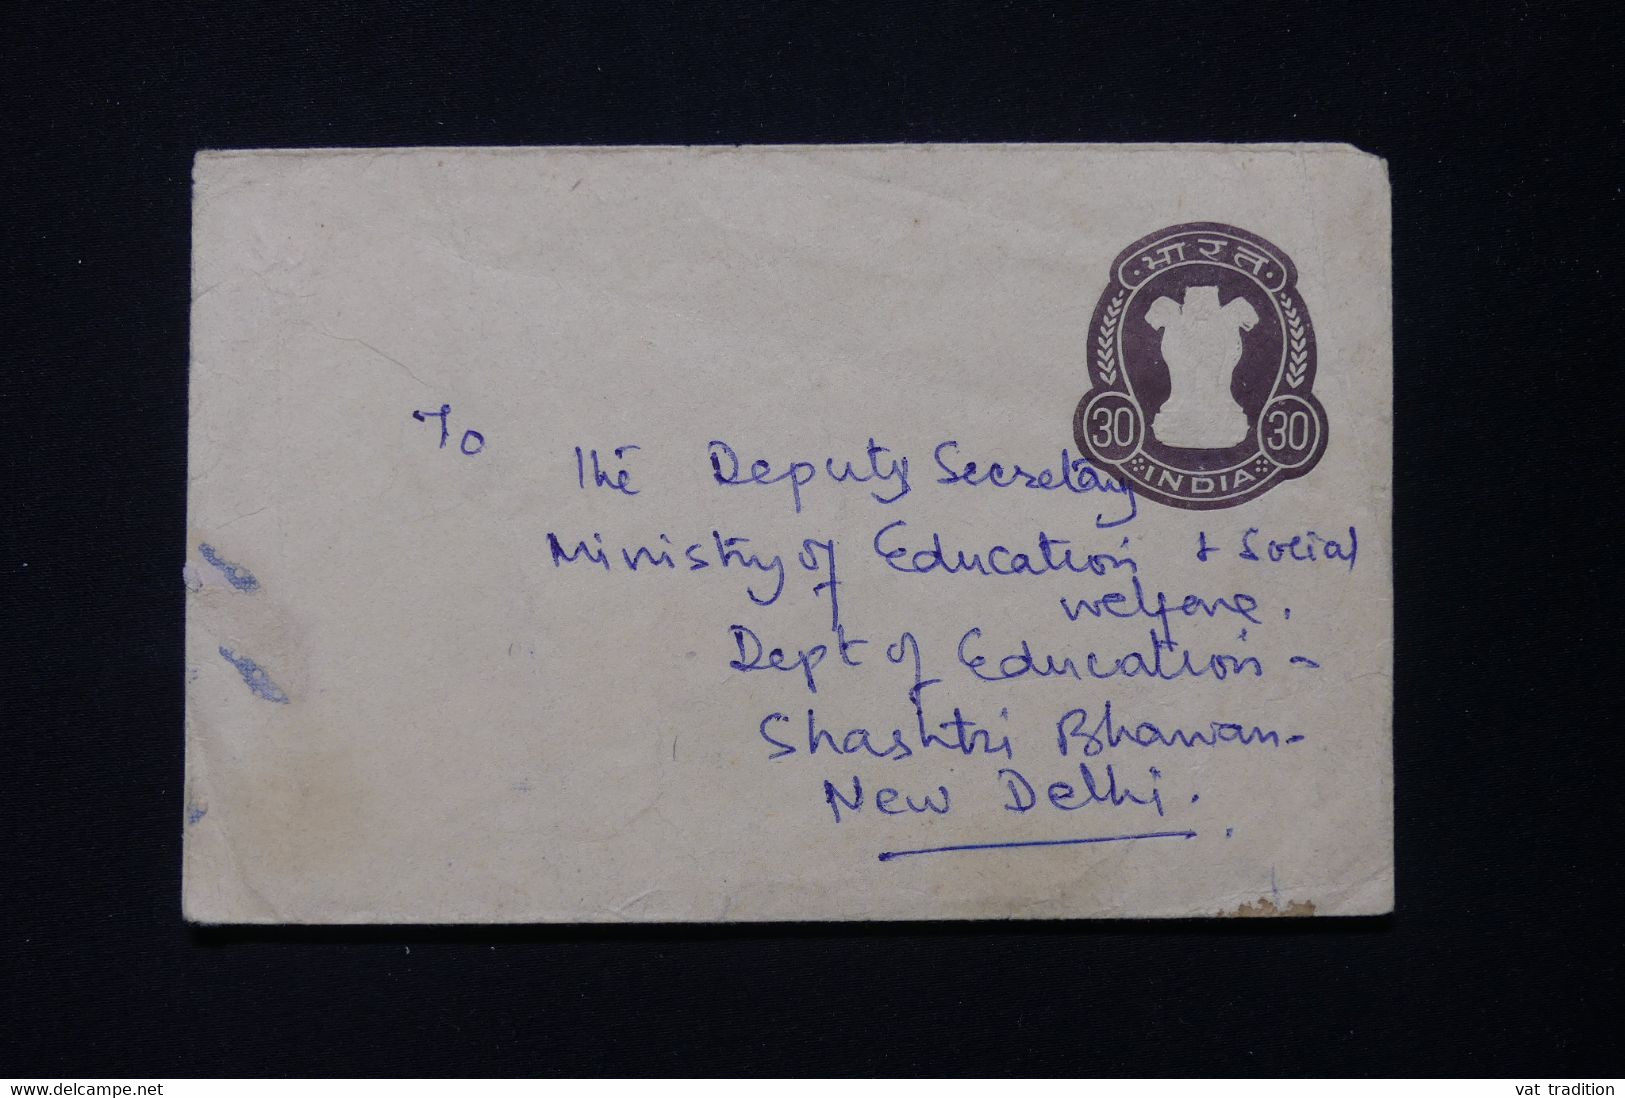 भारत
30 30
INDIA
To
The Deputy Secretary
Ministry of Education & Social
welfare.
Dept of Education -
Shashtri Bhawan-
New Delhi.
www.delcampe.net
vat tradition